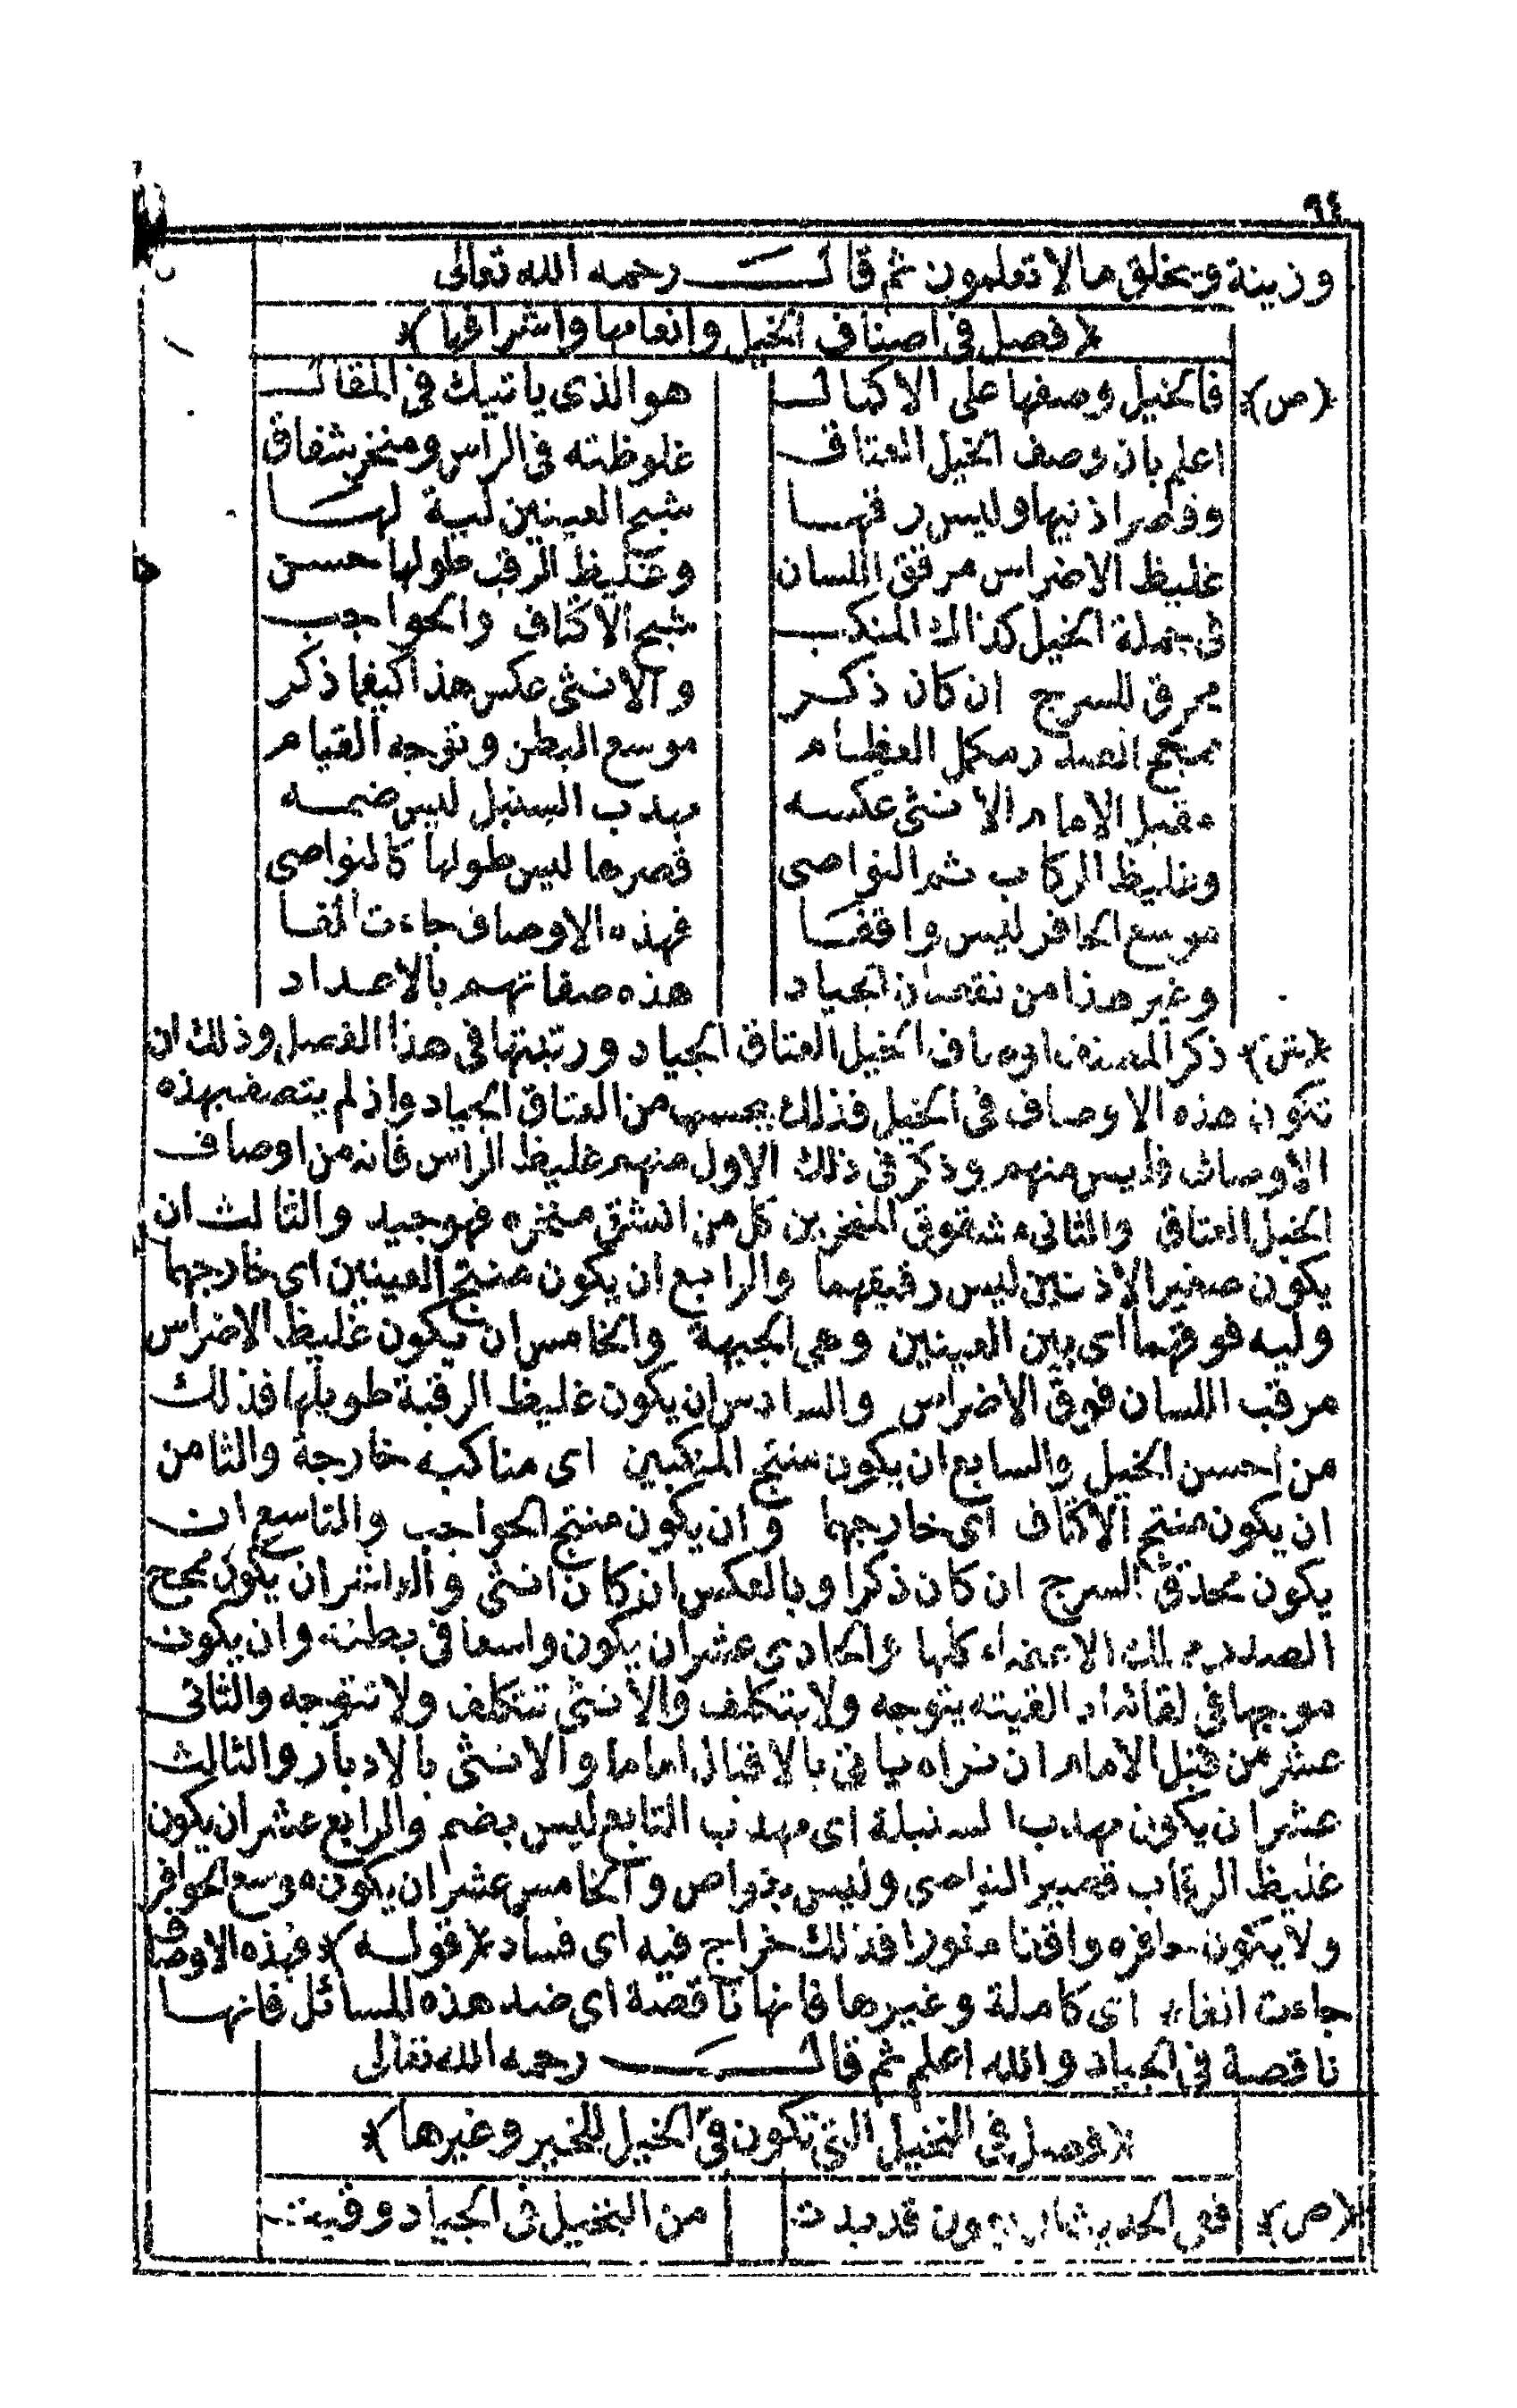 ٩٤
وزينة ويخلق مالا تعلمون ثم قال رحمه الله تعالى
﴿فصل في اصناف الخيل وانعامها واشرافها﴾
﴿ص﴾ فالخيل وصفها على الاكمال هو الذى ياتيك في المقال
اعلم بان وصف الخيل العتاق غلوظته في الراس ومنخر شقاق
وقصر اذنيها وليس رقها شبح العينين لبية لها
غليظ الاضراس مرقق اللسان وغليظ الرقب طولها حسن
في جملة الخيل كذاك المنكب شبح الاكتاف والحواجب
يمرق للسرج ان كان ذكر والانثى عكس هذا كيفما ذكر
الصدر مكمل العظام موسع البطن وتوجه القيام
مقبل الامام الانثى عكسه مهدب السنبل ليس ضمه
وغليظ الركاب ثم النواصى قصرها ليس طولها كالنواصى
موسع الحافر ليس واقفا فهذه الاوصاف جاءت انفا
وغير هذا من نقصان الجياد هذه صفاتهم بالاعداد
﴿ش﴾ ذكر المصنف اوصاف الخيل العتاق الجياد ورتبتها في هذا الفصل وذلك ان
تكون هذه الاوصاف في الخيل فذلك يحسبها من العتاق الجياد واذ لم يتصف بهذه
الاوصاف فليس منهم وذكر في ذلك الاول منهم غليظ الراس فانه من اوصاف
الخيل العتاق والثانى مشقوق المنخرين كل من انشق منخره فهو جيد والثالث ان
يكون صغير الاذنين ليس رقيقهما والرابع ان يكون منتبج العينين اى خارجهما
ولبيه فوقهما اى بين العينين وهي الجبهة والخامس ان يكون غليظ الاضراس
مرقب اللسان فوق الاضراس والسادس ان يكون غليظ الرقبة طويلها فذلك
من احسن الخيل والسابع ان يكون منتبج المنكبين اى مناكبه خارجة والثامن
ان يكون منتبج الاكتاف اى خارجها وان يكون منتبج الحواجب والتاسع ان
يكون محذق السرج ان كان ذكرا وبالعكس ان كان انثى والعاشر ان يكون
الصدر الاعضاء كلها والحادى عشر ان يكون واسعا في بطنه وان يكون
موجها في لقائه اذ القيته يتوجه ولا يتكلف والانثى تتكلف ولا تتوجه والثانى
عشر من قبل الامام ان تراه ياتى بالاقبال اماما والانثى بالادبار والثالث
عشر ان يكون مهدب السنبلة اى مهدب التابع ليس بضم والرابع عشر ان يكون
غليظ الركاب قصير النواصى وليس بنواص والخامس عشر ان يكون موسع الحوافر
ولا يكون حوافره واقفا مغورا فذلك خراج فيه اى فساد ﴿قوله﴾ فهذه الاوصاف
جاءت انفا اى كاملة وغيرها فانها ناقصة اى ضد هذه المسائل فانها
ناقصة في الجياد والله اعلم ثم قال رحمه الله تعالى
﴿فصل في النخيل التى تكون في الخيل للخير وغيرها﴾
﴿ص﴾ ففى الحديث قد بدت من النخيل في الجياد